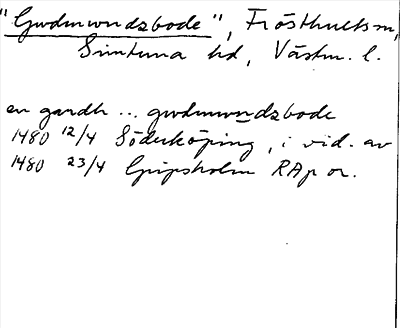 "Gwdmwndzbode", Frösthults sn,
Simtuna hd, Västm. l.
en gardh ... gwdmwndzbode
1480 12/4 Söderköping, i vid. av
1480 23/4 Gripsholm RAp or.